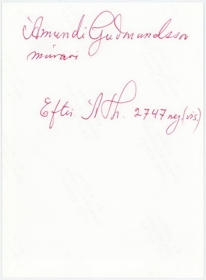 Ámundi Guðmundsson
múrari
Eftir Á Th. 2747 neg (vis)